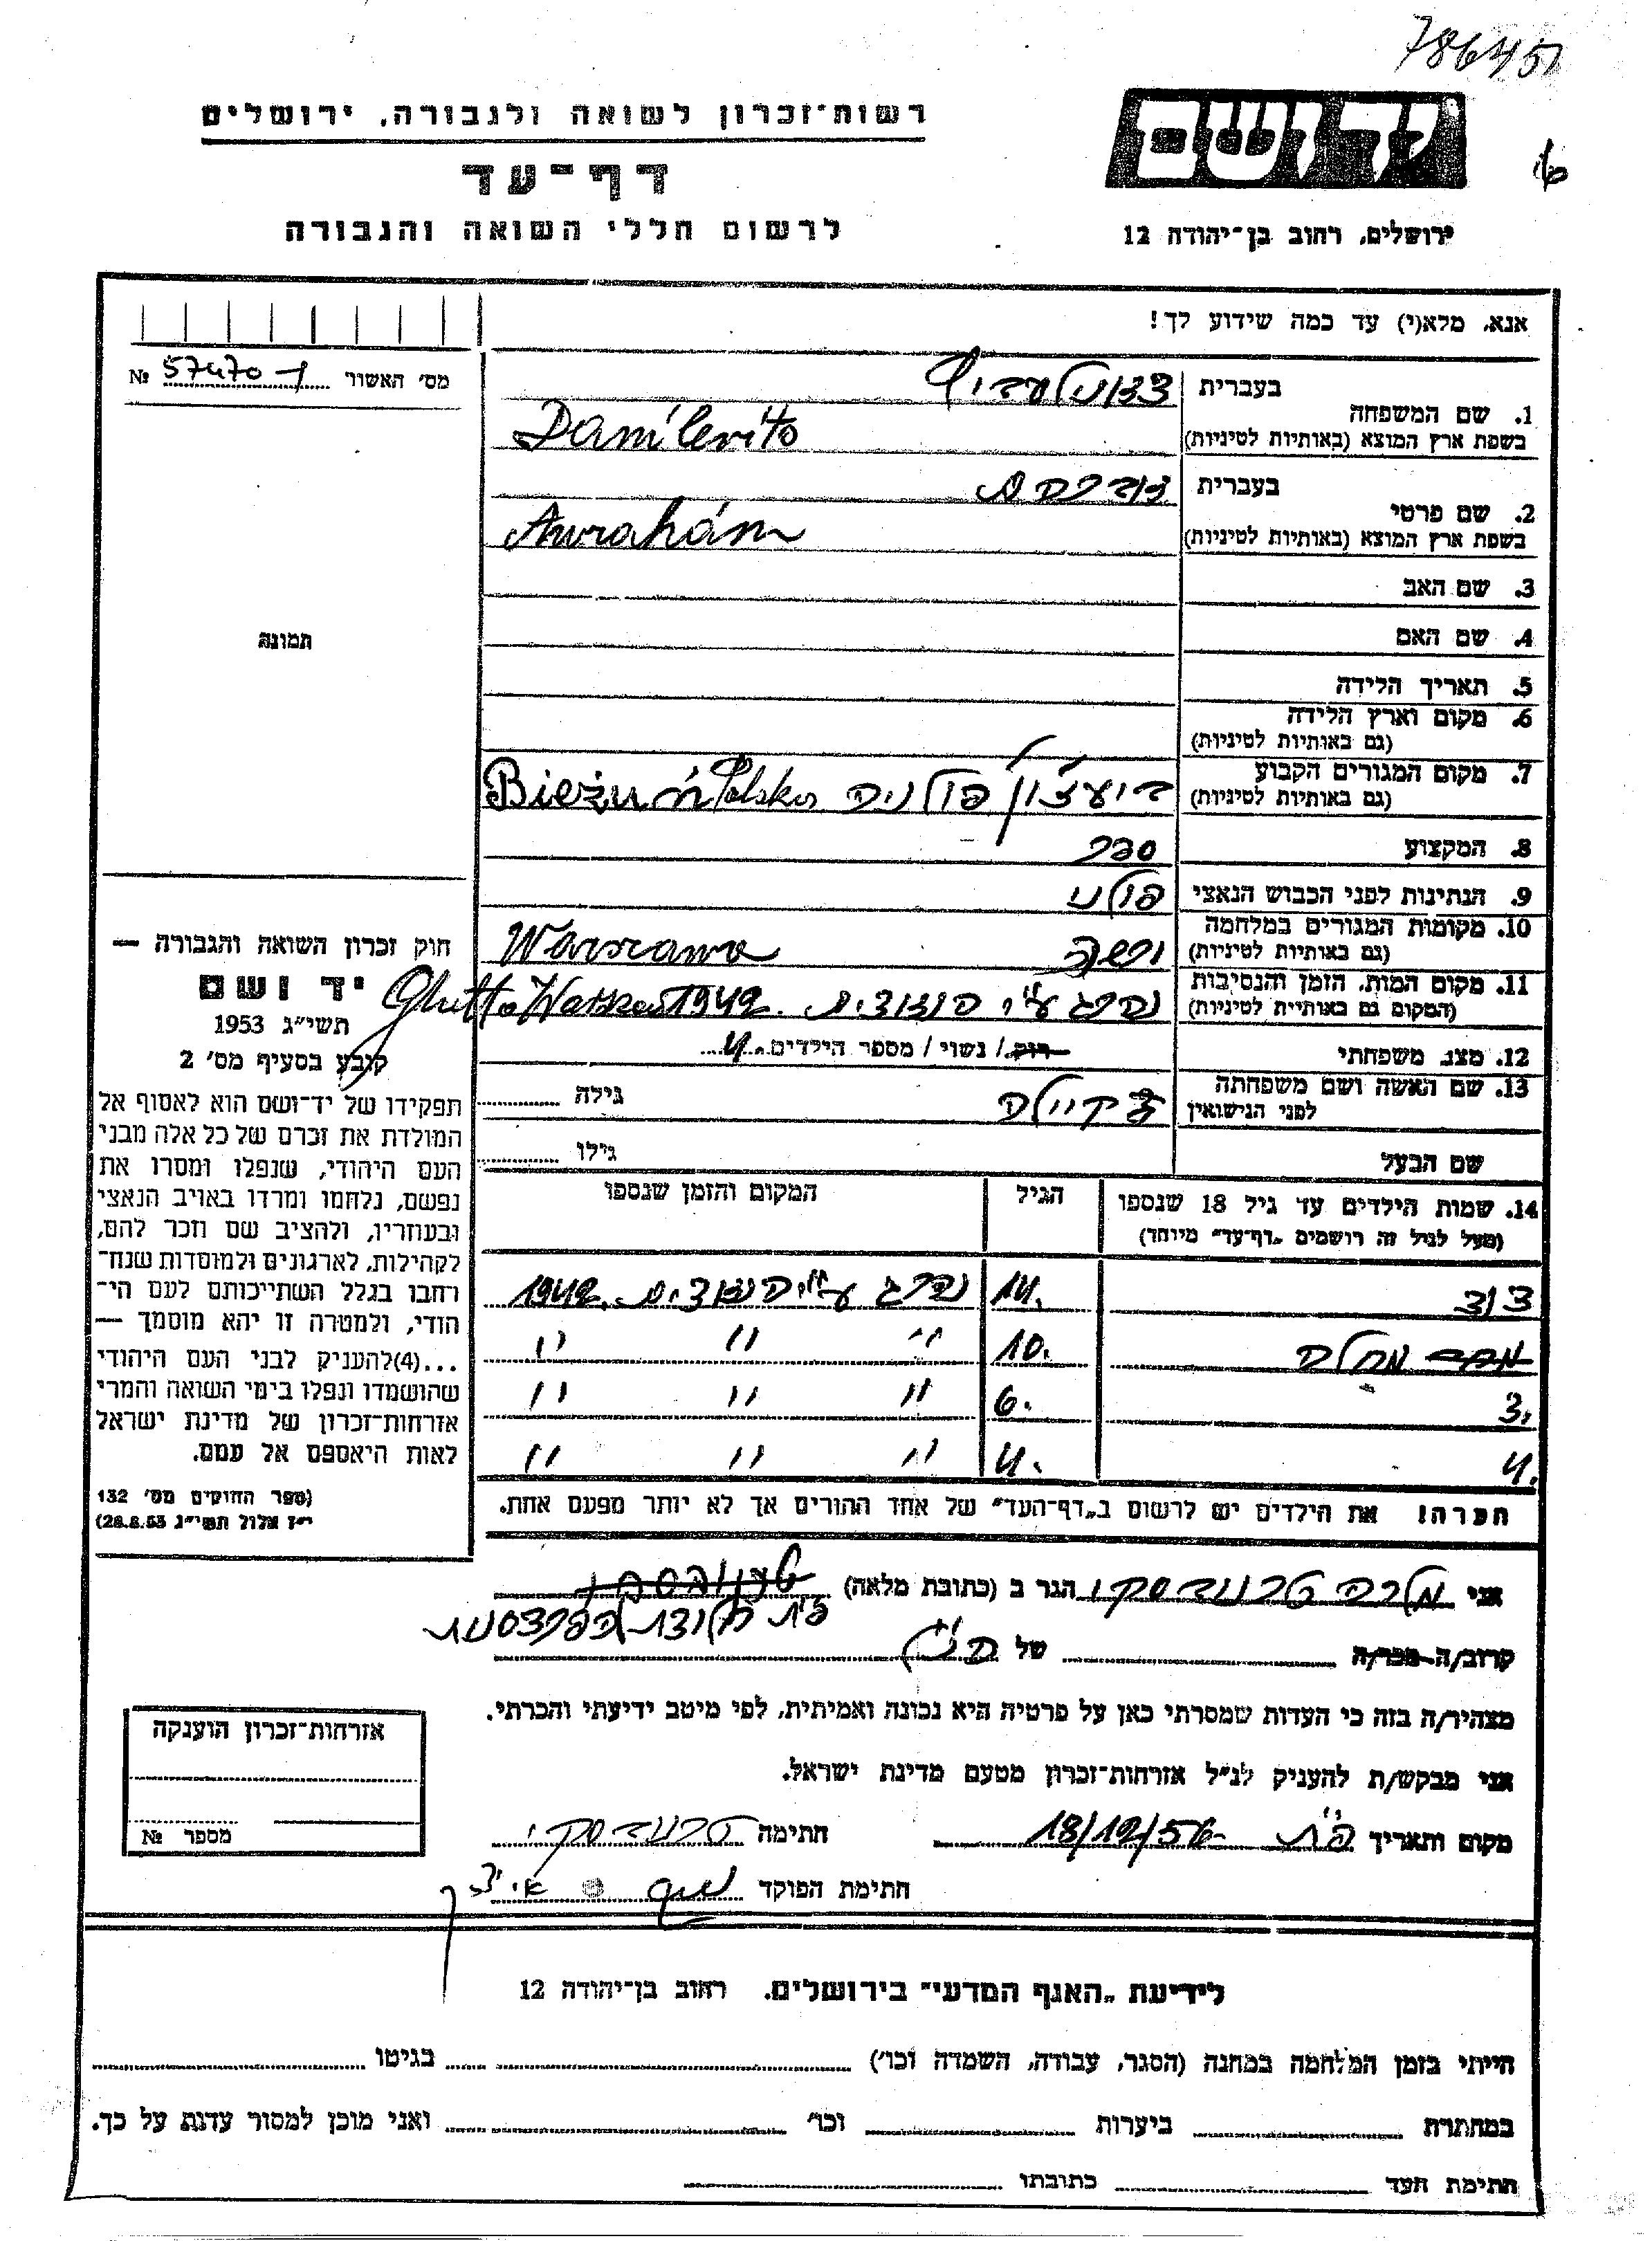 786451
רשות־זכרון לשואה ולגבורה, ירושלים
יד ושם
דף־עד
לרשום חללי השואה והגבורה
ירושלים, רחוב בן־יהודה 12
אנא, מלא(י) עד כמה שידוע לך!
מס׳ האשור 57470 №
1. שם המשפחה
בעברית
בשפת ארץ המוצא (באותיות לטיניות) Danilevito
2. שם פרטי
בעברית אברהם
בשפת ארץ המוצא (באותיות לטיניות) Avrahám
3. שם האב
4. שם האם
תמונה
5. תאריך הלידה
6. מקום וארץ הלידה
(גם באותיות לטיניות)
7. מקום המגורים הקבוע ביעזון פולניה Bieżuń Polska
(גם באותיות לטיניות)
8. המקצוע ספר
9. הנתינות לפני הכבוש הנאצי פולני
10. מקומות המגורים במלחמה ורשה Warszawa
(גם באותיות לטיניות)
11. מקום המות, הזמן והנסיבות נהרג ע״י הנאצים 1942. Ghetto
(המקום גם באותיית לטיניות)
12. מצב משפחתי רוק / נשוי / מספר הילדים 4
13. שם האשה ושם משפחתה
לפני הנישואין
גילה
שם הבעל גילו
14. שמות הילדים עד גיל 18 שנספו הגיל המקום והזמן שנספו
(מעל לגיל זה רושמים „דף־עד״ מיוחד)
14. נהרג ע״י הנאצים 1942.
מחלה 10. ״ ״ ״
3. 6. ״ ״ ״
4. 4. ״ ״ ״
הכרה! את הילדים יש לרשום ב„דף־העד״ של אחד ההורים אך לא יותר מפעם אחת.
חוק זכרון השואה והגבורה —
יד ושם
תשי״ג 1953
קובע בסעיף מס׳ 2
תפקידו של יד־ושם הוא לאסוף אל
המולדת את זכרם של כל אלה מבני
העם היהודי, שנפלו ומסרו את
נפשם, נלחמו ומרדו באויב הנאצי
ובעוזריו, ולהציב שם וזכר להם,
לקהילות, לארגונים ולמוסדות שנח־
רחבו בגלל השתייכותם לעם הי־
הודי, ולמטרה זו יהא מוסמך —
...(4)להעניק לבני העם היהודי
שהושמדו ונפלו בימי השואה והמרי
אזרחות־זכרון של מדינת ישראל
לאות היאספם אל עמם.
(ספר החוקים מס׳ 132
י״ז אלול תשי״ג 28.8.53)
אני מלכה טרונובסקי הגר ב (כתובת מלאה)
קרוב/ה מכר/ה של הנ״ל
מצהיר/ה בזה כי העדות שמסרתי כאן על פרטיה היא נכונה ואמיתית, לפי מיטב ידיעתי והכרתי.
אני מבקש/ת להעניק לנ״ל אזרחות־זכרון מטעם מדינת ישראל.
מקום ותאריך 18/12/56 חתימה
חתימת הפוקד
אזרחות־זכרון הוענקה
מספר №
לידיעת „האגף המדעי״ בירושלים. רחוב בן־יהודה 12
הייתי בזמן המלחמה במחנה (הסגר, עבודה, השמדה וכו׳) בגיטו
במחתרת ביערות וכו׳ ואני מוכן למסור עדות על כך.
חתימת העד כתובתו